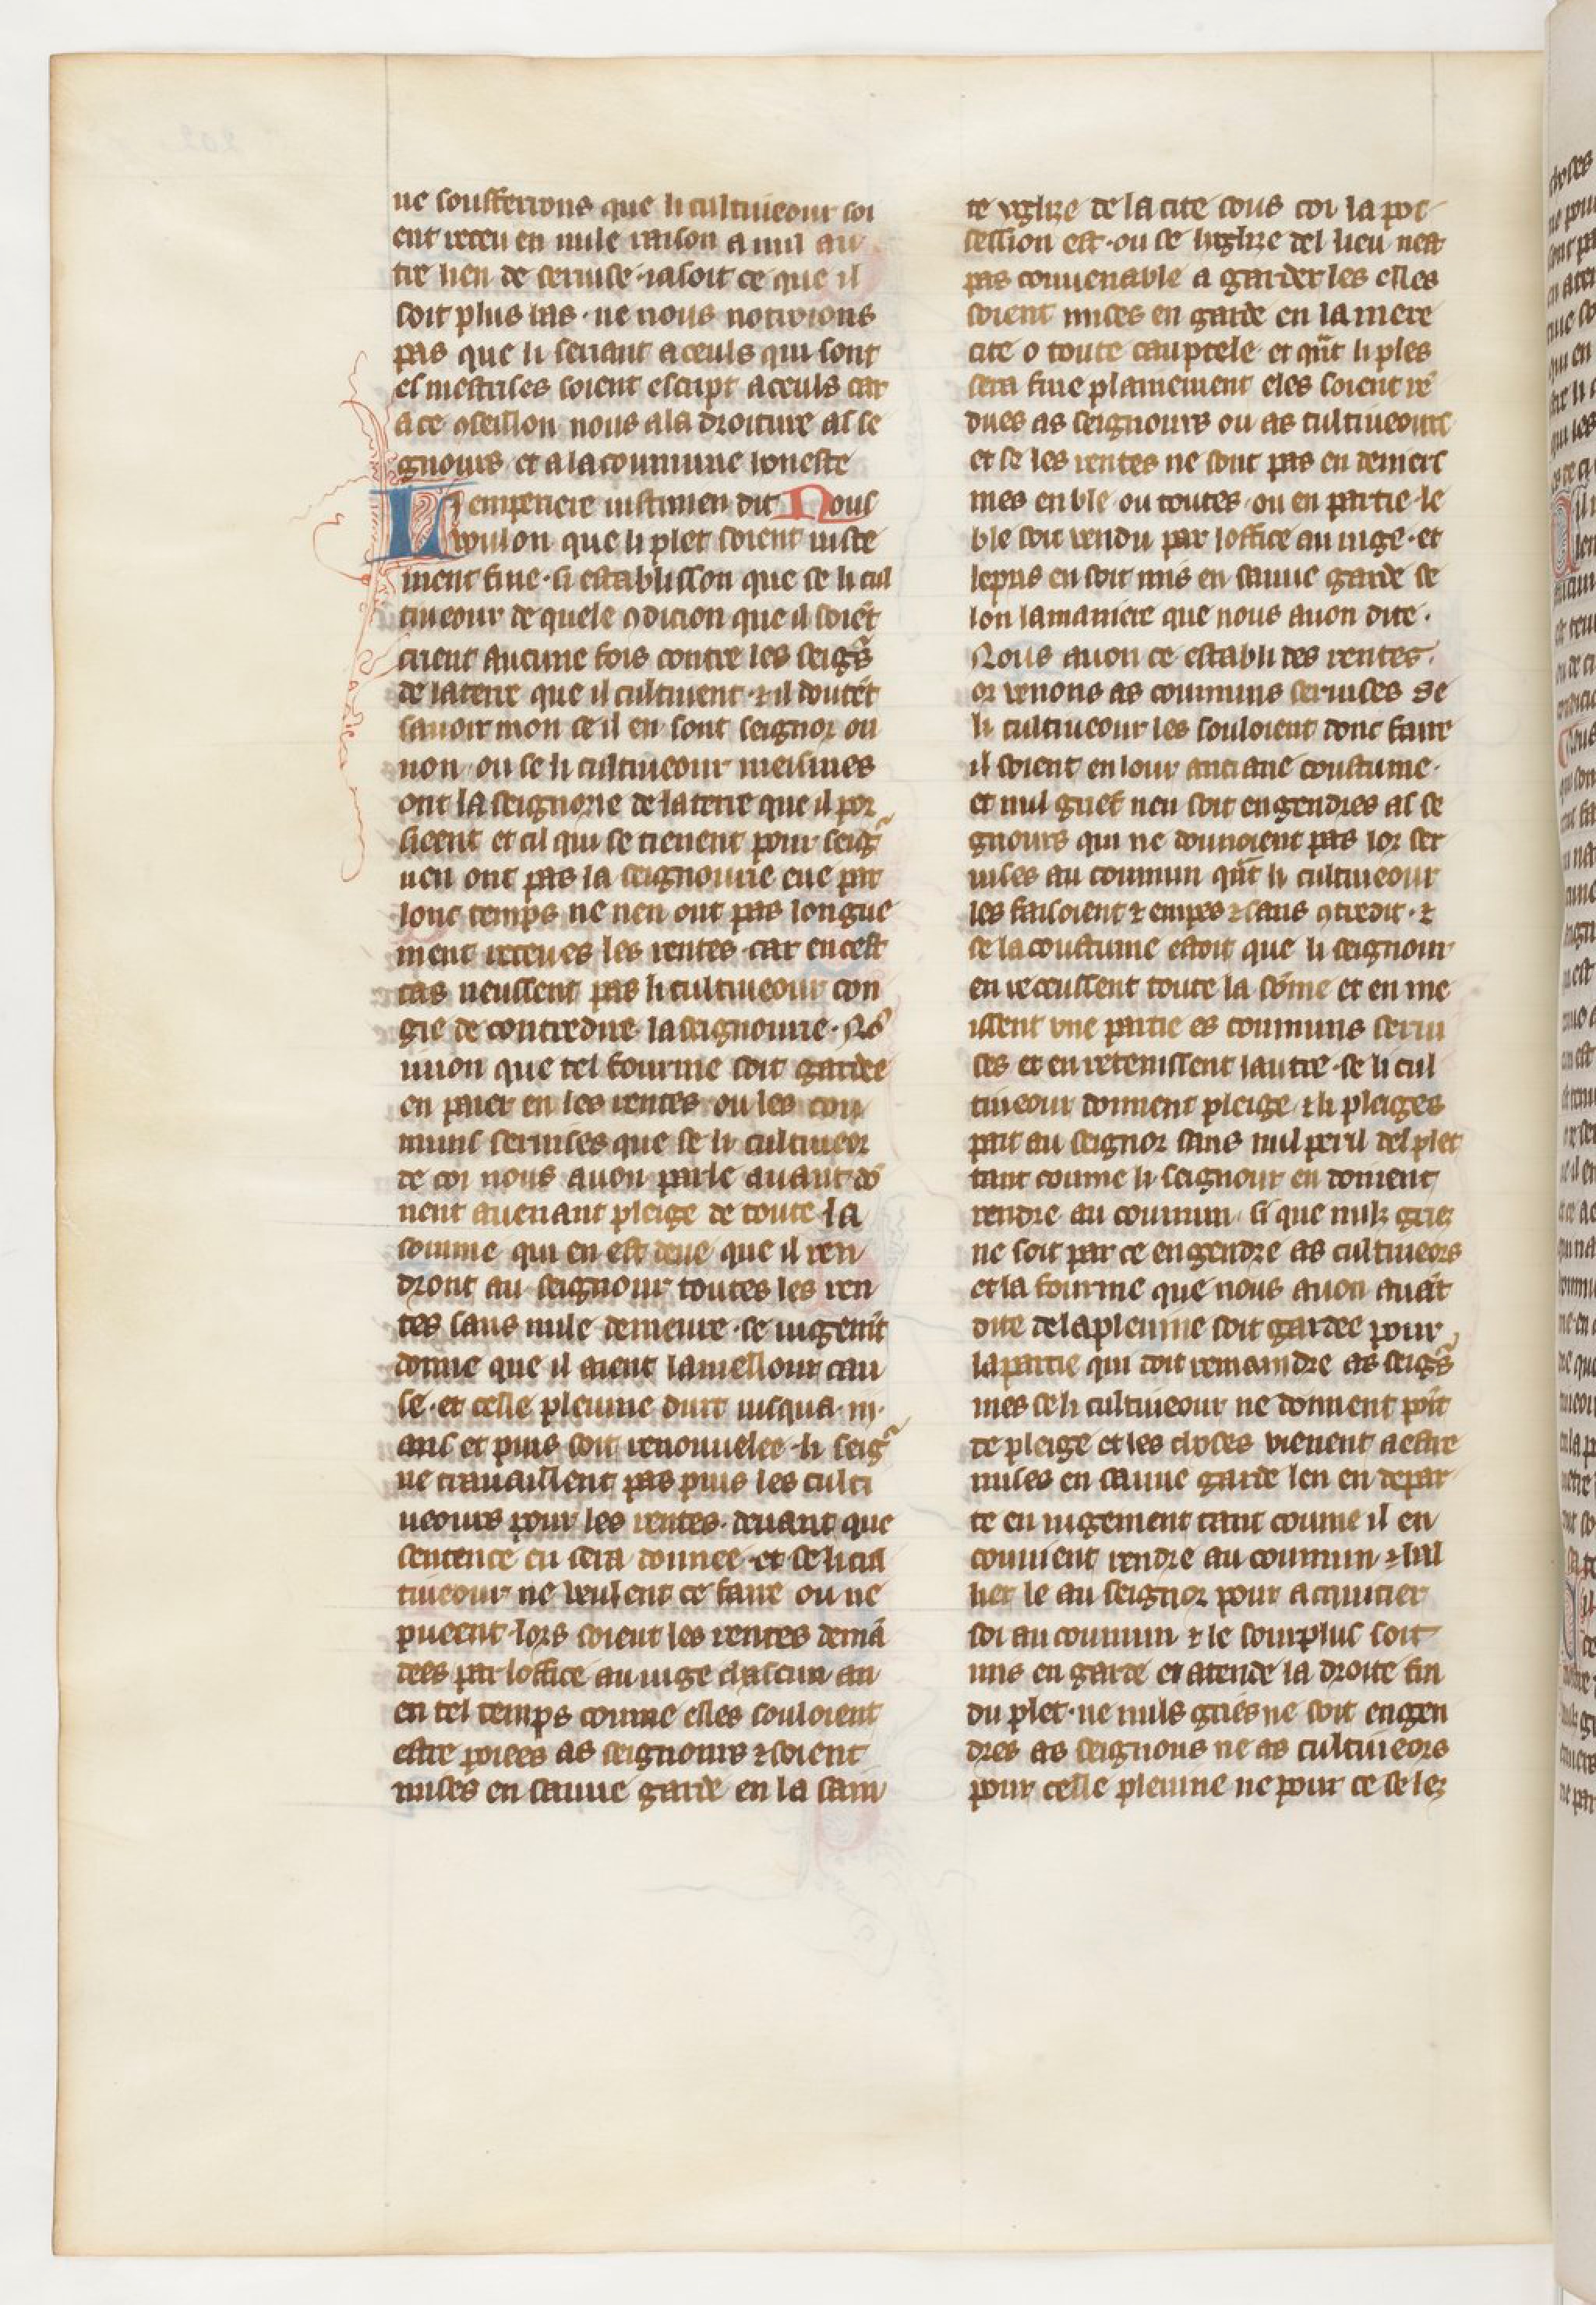 ne soufferrons que li cultiueour soi
ent receu en nule raison a nul au
tre lien de seruise · ia soit ce que il
soit plus bas · ne nous notroions
pas que li seriant a ceuls qui sont
es mestrises soient escript a ceuls car
a ce 9seillon nous a la droiture as se
gnours et a la coumune honeste
Li emperiere iustinien dit Nous
woulon que li plet soient iuste
ment finé · si establisson que se li cul
tiueour de quele 9dicion que il soiẽt
crient aucune fois contre les seigrs̃
de la terre que il cultiuent · ⁊ il doutẽt
sauoir mon se il en sont seignor ou
non · ou se li cultiueour meismes
ont la seignorie de la terre que il por
sieent et cil qui se tienent pour seigr̃
nen ont pas la seignourie eue par
lonc temps ne nen ont pas longue
ment receues les rentes · car en cest
cas neussent pas li cultiueour con
gié de contredire la seignourie · No9
uuion que tel fourme soit gardee
en paier en les rentes ou les cou
muns seruises que se li cultiueor
de coi nous auon parle auant dõ
nent auenant pleige de toute la
somme qui en est deue que il ren
dront au seignour toutes les ren
tes sans nule demeure · se iugemt̃
donne que il aient la meillour cau
se · et celle pleuine durt iusqua · iii ·
ans et puis soit renouuelee · li seigr̃
ne trauaillent pas puis les culti
ueours pour les rentes · deuant que
sentence en sera donnee · et se li cul
tiueour ne veulent ce faire ou ne
pueent · lors soient les rentes demã
dees par loffice au iuge chascun an
en tel temps comme elles souloient
estre poiees as seignours ⁊ soient
mises en sauue garde en la sain
te yglize de la cite sous coi la pos
session est · ou se liglize del lieu nest
pas conuenable a garder les elles
soient mises en garde en la mere
cite o toute cauptele et qũt li ples
sera fine plainement eles soient rẽ
dues as seignours ou as cultiueours
et se les rentes ne sont pas en deniers
mes en ble · ou toutes · ou en partie · le
ble soit vendu par loffice au iuge · et
lepris en soit mis en sauue garde se
lon la maniere que nous auon dite ·
Nous auon ce establi des rentes ·
or venons as communs seruises se
li cultiueour les souloient donc faire
il soient en lour anciane coustume ·
et nul grief nen soit engendres as se
gnours qui ne donnoient pas lor ser
uises au coumun qũt li cultiueour
les faisoient ⁊ empes ⁊ sans 9tredit · ⁊
se la coustume estoit que li seignour
en receussent toute la sõme et en me
issent vne partie es coumuns serui
ses et en retenissent lautre · se li cul
tiueour donnent pleige · ⁊ li pleiges
part au seignor sans nul peril del plet
tant coume li seignour en doiuent
rendre au coumun · si que nulz griez
ne soit par ce engendre as cultiueors
et la fourme que nous auon auãt
dite de la pleuuine soit gardee pour
la partie qui doit remaindre as seigrs̃
mes se li cultiueour ne donnent poĩt
de pleige et les choses vienent a estre
mises en sauue garde len en depar
te en iugement tant coume il en
conuient rendre au coumun ⁊ bail
lier le au seignor pour acquitier
soi au coumun ⁊ le sourplus soit
mis en garde et atende la droite fin
du plet · ne nuls griés ne soit engen
dres as seignous ne as cultiueors
pour celle pleuine ne pour ce se lez